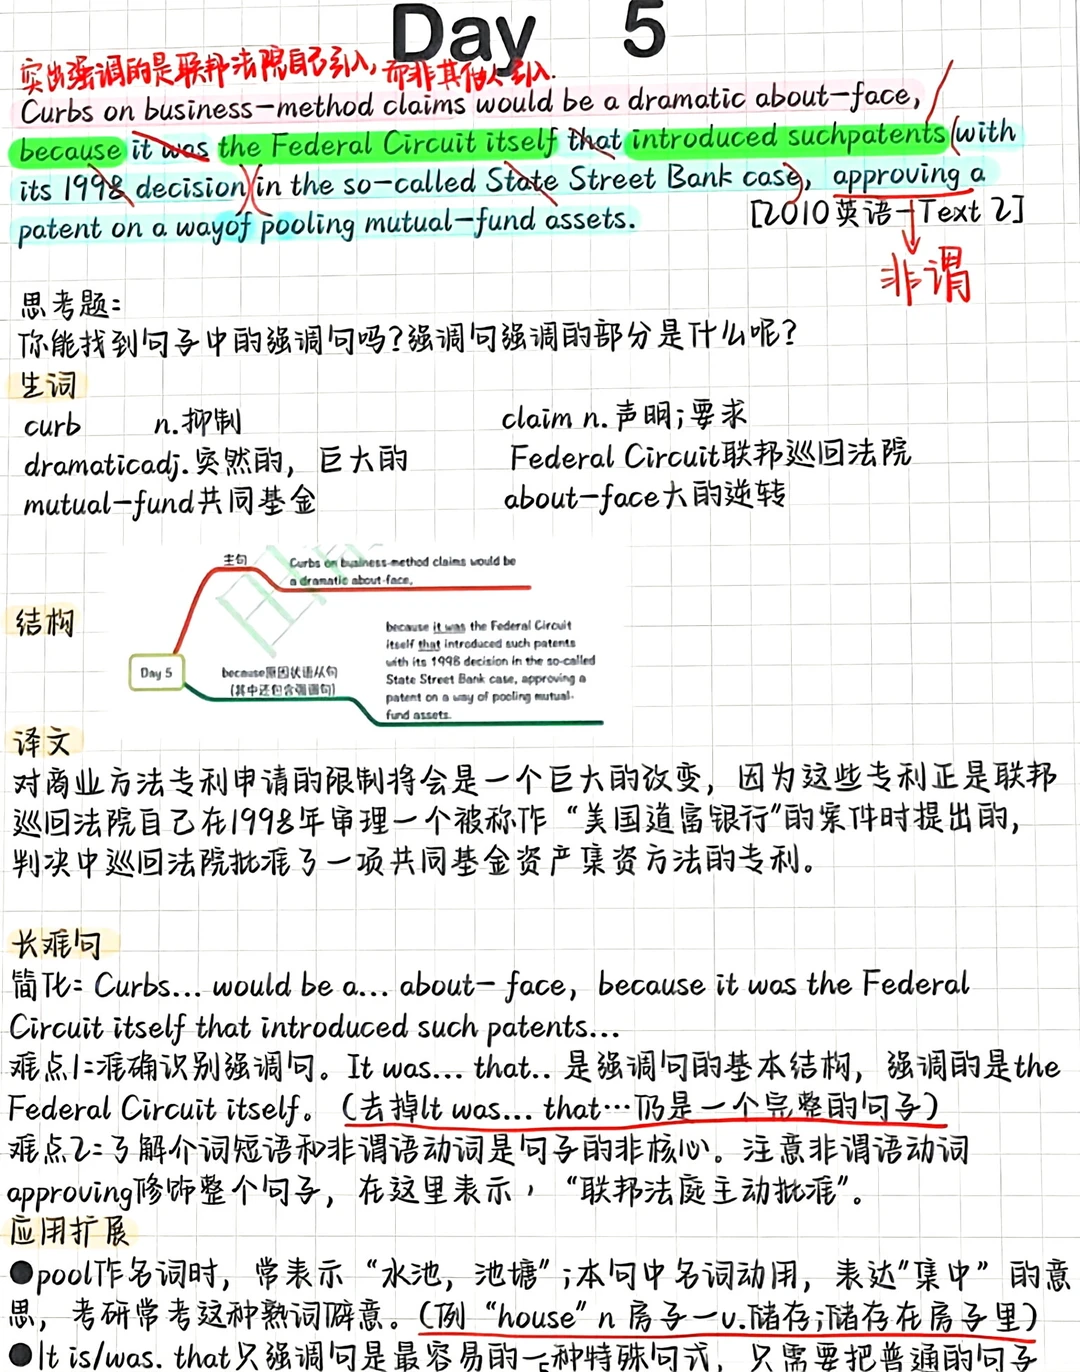 Day 5
突出强调的是联邦法院自己引入，而非其他人引入.
Curbs on business-method claims would be a dramatic about-face,
because it was the Federal Circuit itself that introduced suchpatents (with
its 1998 decision)(in the so-called State Street Bank case), approving a
patent on a wayof pooling mutual-fund assets.
[2010英语一Text 2]
非谓
思考题:
你能找到句子中的强调句吗?强调句强调的部分是什么呢?
生词
curb n.抑制 claim n.声明;要求
dramaticadj.突然的，巨大的 Federal Circuit联邦巡回法院
mutual-fund共同基金 about-face大的逆转
主句
Curbs on business-method claims would be
a dramatic about-face,
结构
Day 5
because原因状语从句
(其中还包含强调句)
because it was the Federal Circuit
itself that introduced such patents
with its 1998 decision in the so-called
State Street Bank case, approving a
patent on a way of pooling mutual-
fund assets.
译文
对商业方法专利申请的限制将会是一个巨大的改变，因为这些专利正是联邦
巡回法院自己在1998年审理一个被称作“美国道富银行”的案件时提出的，
判决中巡回法院批准了一项共同基金资产集资方法的专利。
长难句
简化: Curbs... would be a... about- face, because it was the Federal
Circuit itself that introduced such patents...
难点1:准确识别强调句。It was... that.. 是强调句的基本结构，强调的是the
Federal Circuit itself。(去掉It was... that…仍是一个完整的句子)
难点2:了解介词短语和非谓语动词是句子的非核心。注意非谓语动词
approving修饰整个句子，在这里表示，“联邦法庭主动批准”。
应用扩展
●pool作名词时，常表示“水池，池塘”;本句中名词动用，表达“集中”的意
思，考研常考这种熟词僻意。(例“house”n 房子一v.储存;储存在房子里)
●It is/was. that只强调句是最容易的一种特殊句式，只需要把普通的句子